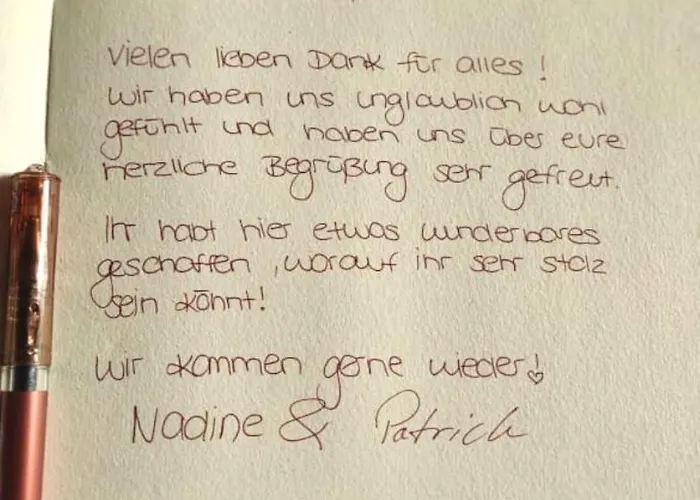 Vielen lieben Dank für alles!
Wir haben uns unglaublich wohl
gefühlt und haben uns über eure
herzliche Begrüßung sehr gefreut.
Ihr habt hier etwas wunderbares
geschaffen, worauf ihr sehr stolz
sein könnt!
Wir kommen gerne wieder!
Nadine & Patrick